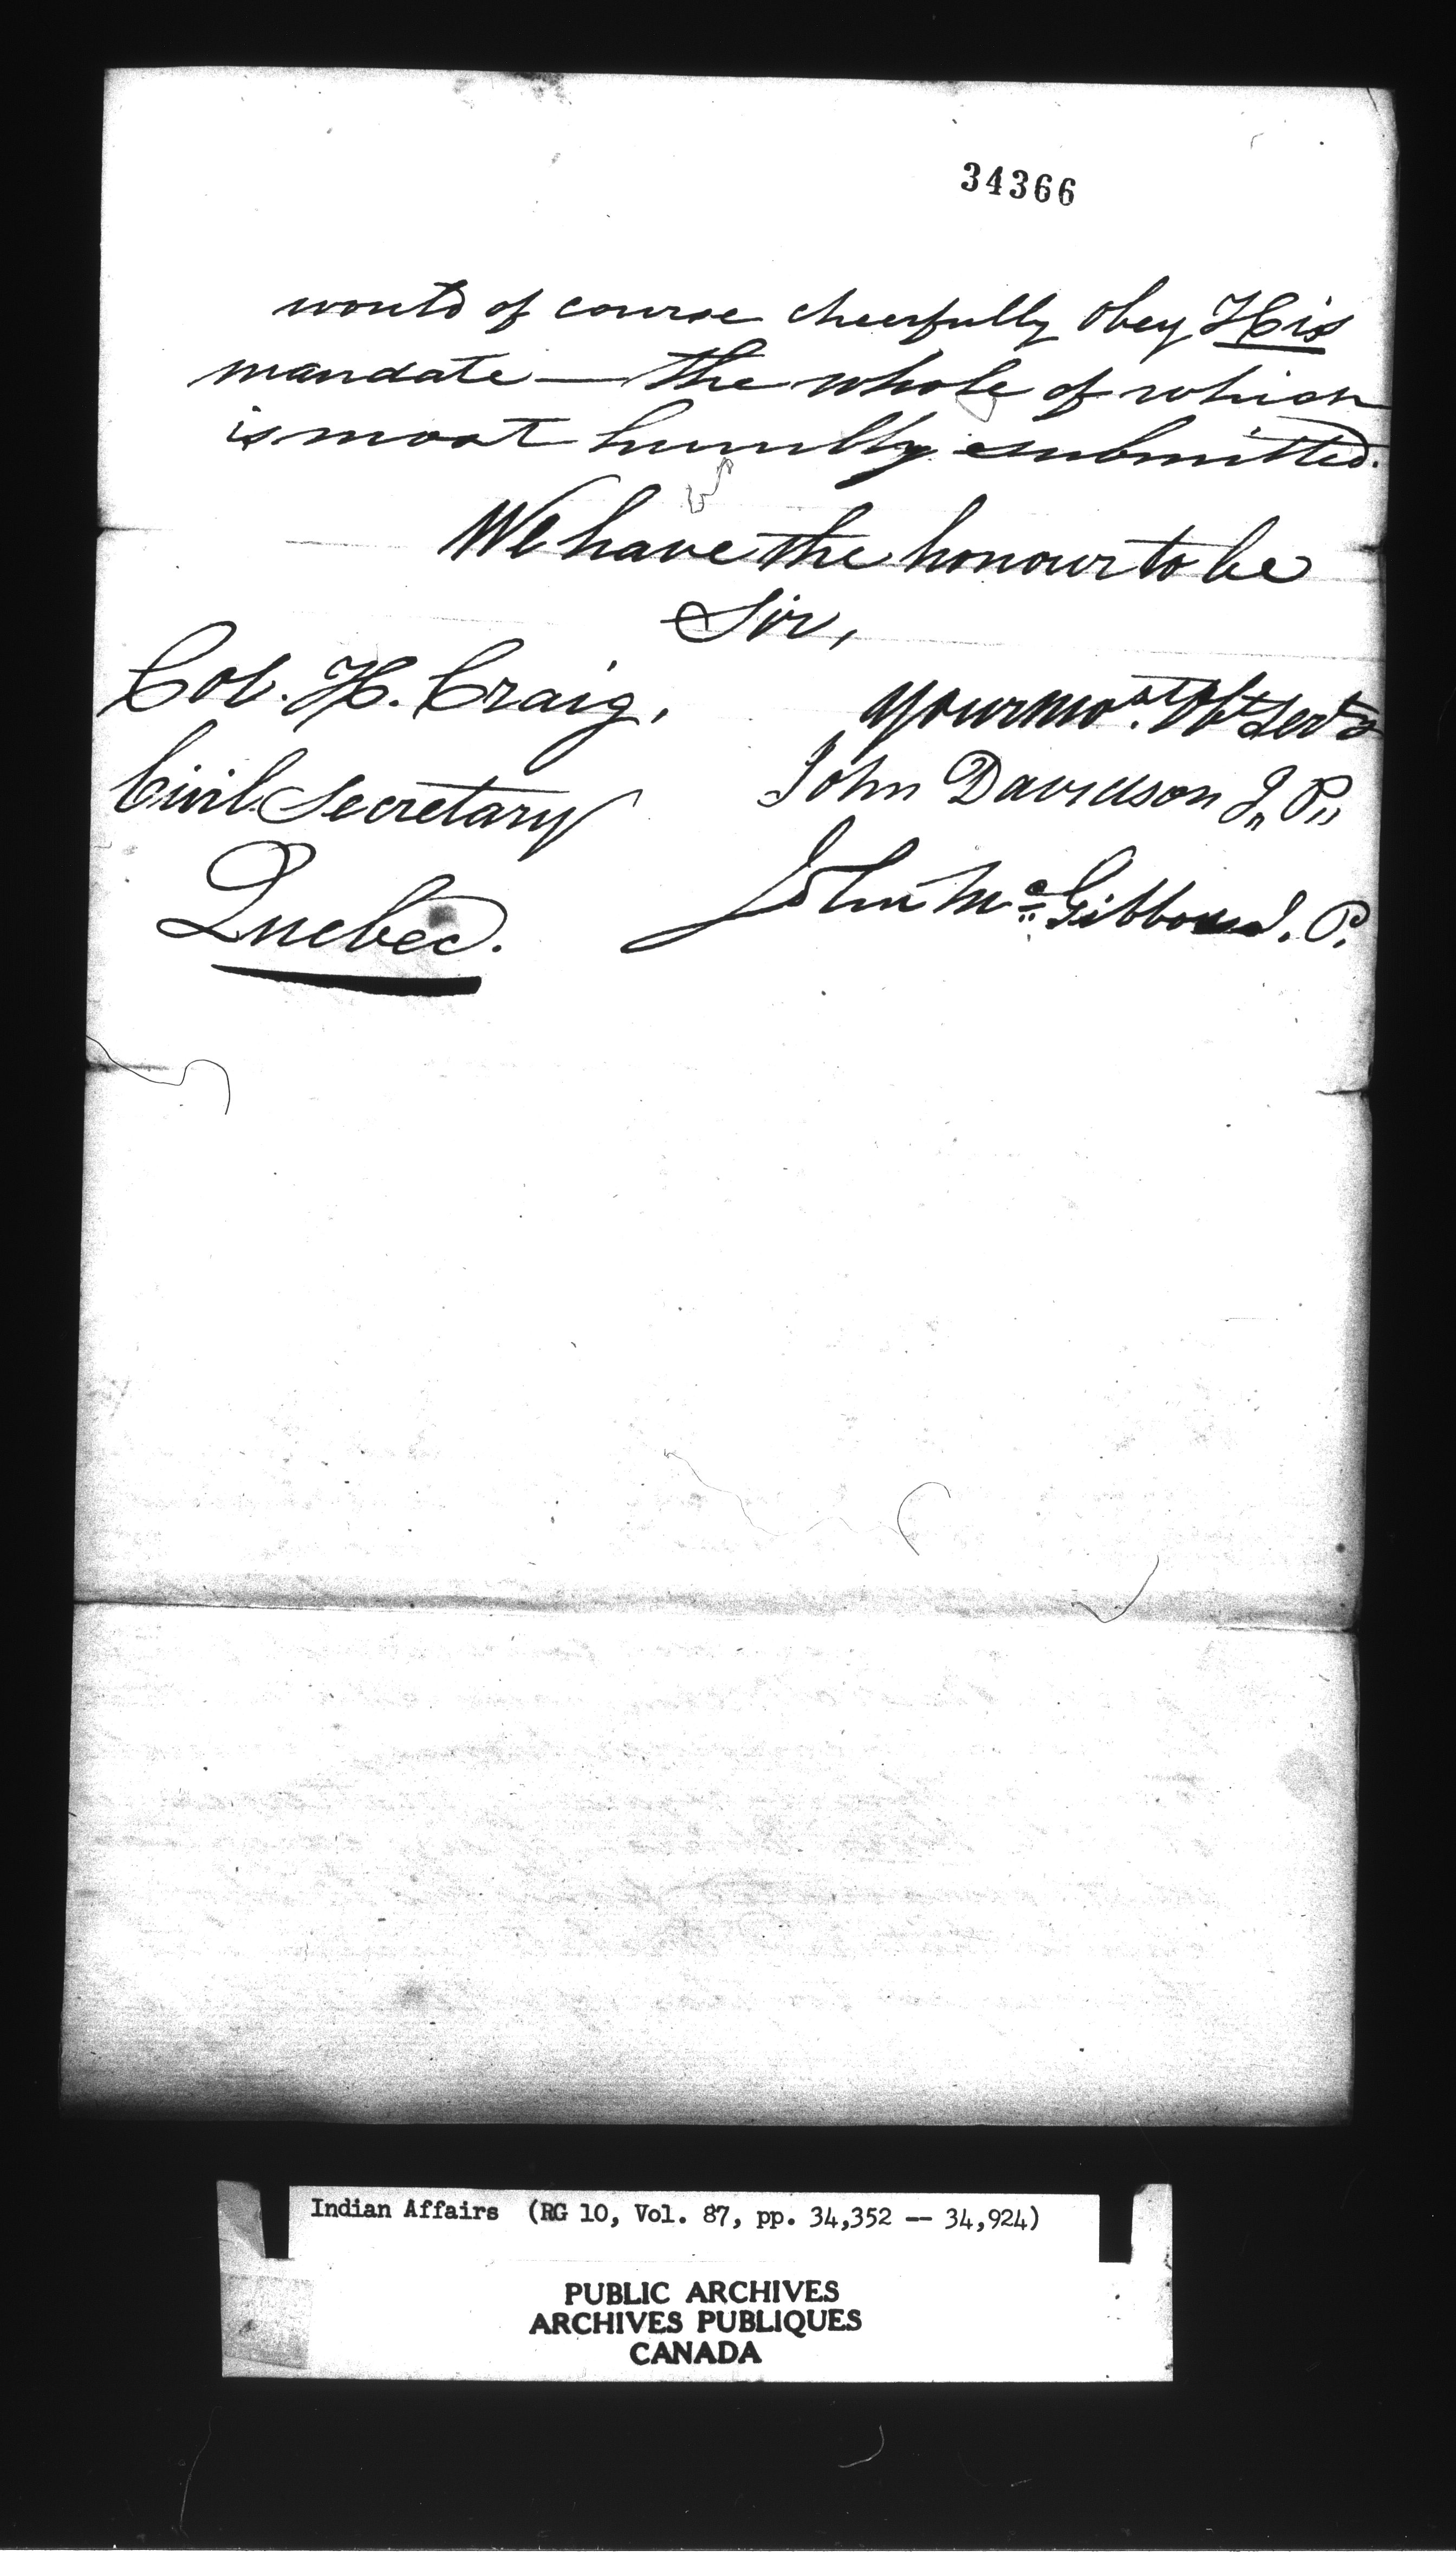 34366
would of course cheerfully obey His
mandate — the whole of which
is most humbly submitted.
We have the honour to be
Sir,
Your most. Obt Servts
John Davidson J,, P,,
John Mc Gibbon J. P.
Col. H. Craig,
Civil Secretary
Quebec.
Indian Affairs (RG 10, Vol. 87, pp. 34,352 -- 34,924)
PUBLIC ARCHIVES
ARCHIVES PUBLIQUES
CANADA